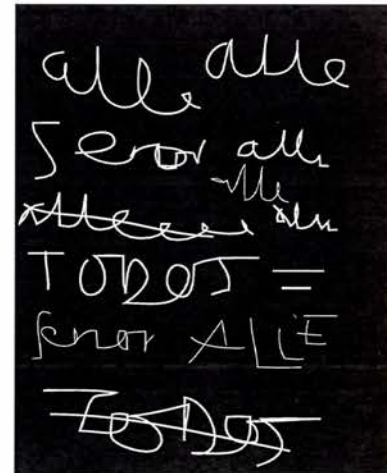 alle alle
Senor alle
alle
alle
TODOS =
Senor ALLE
TODOS